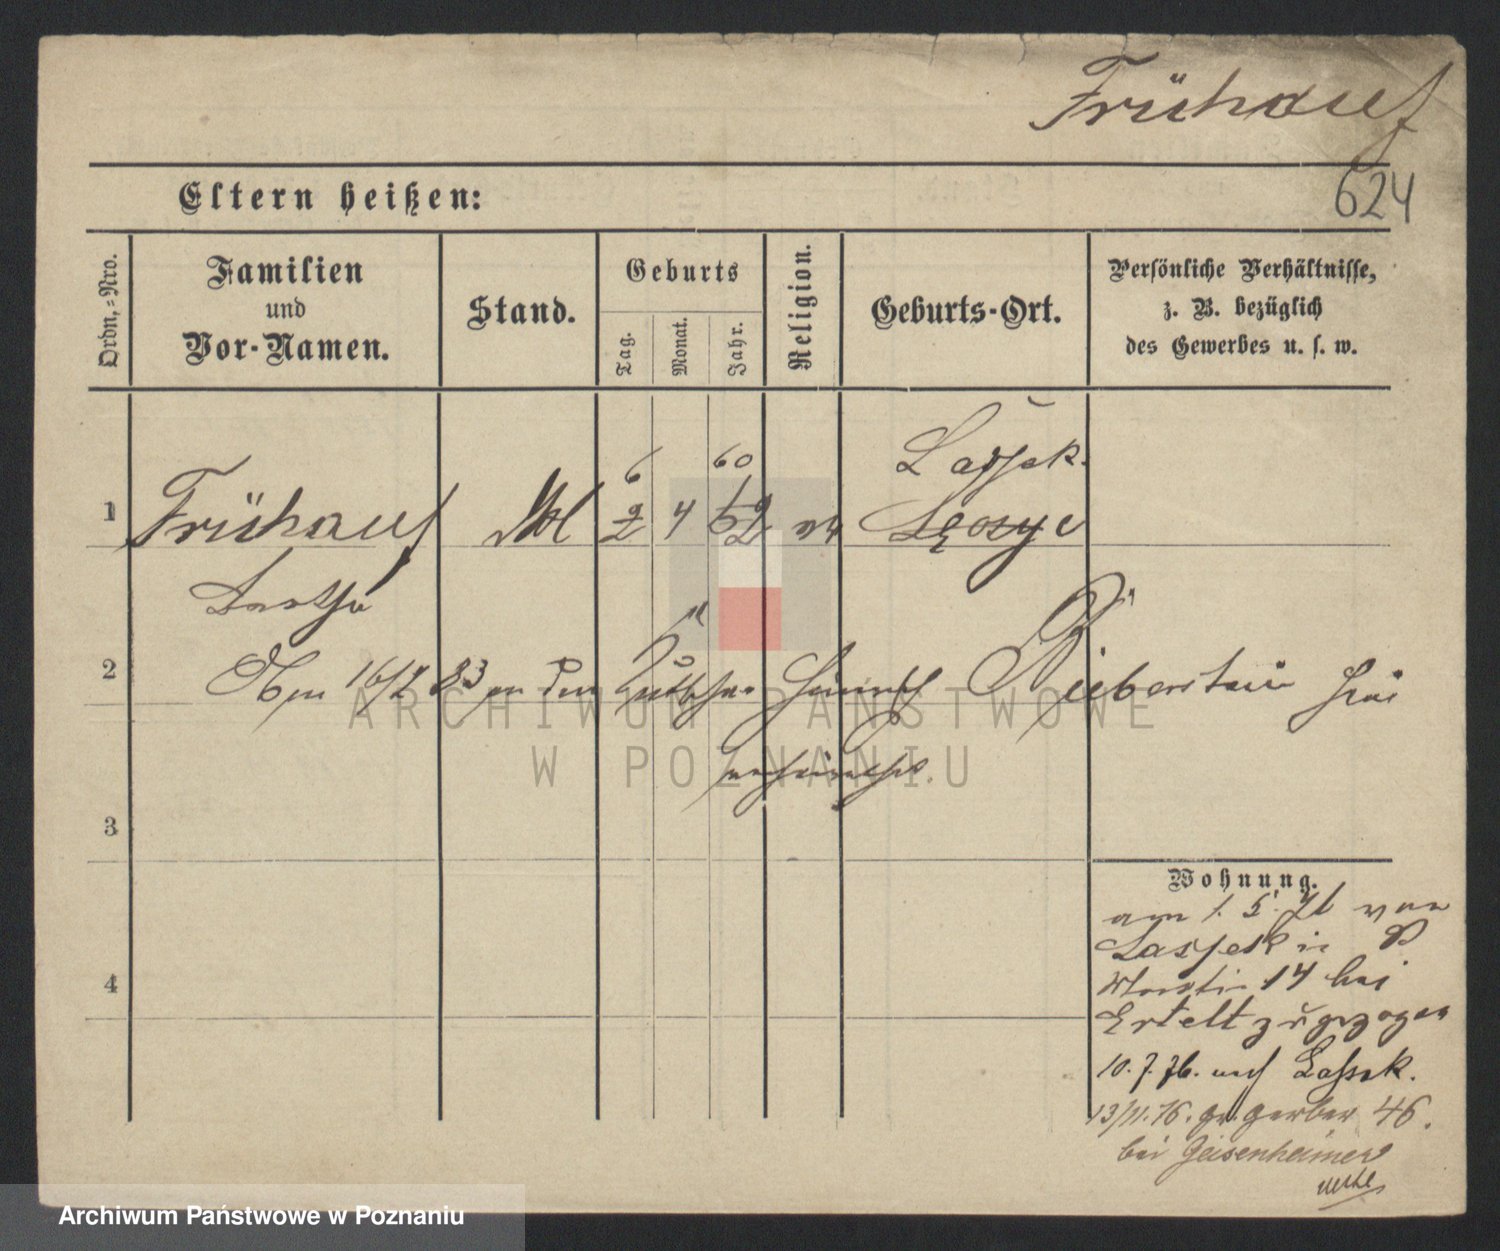 Frühauf
624
Eltern heißen:
Ordn,=Nro.
Familien
und
Vor-Namen.
Stand.
Geburts
Tag.
Monat.
Jahr.
Religion.
Geburts-Ort.
Persönliche Verhältnisse,
z. B. bezüglich
des Gewerbes u. s. w.
6 60 Lassek.
1 Frühauf 2 4 52
2 16/2 83 an den Bieberstein hier
verheirathet.
3
Wohnung.
am 1. 5. 76 von
Lassek in P
14 bei
Ertelt zugezogen
10. 7. 76. nach Lassek.
13/11. 76. gr. gerber 46.
bei Geisenheimer
4
ARCHIWUM PAŃSTWOWE
W POZNANIU
Archiwum Państwowe w Poznaniu